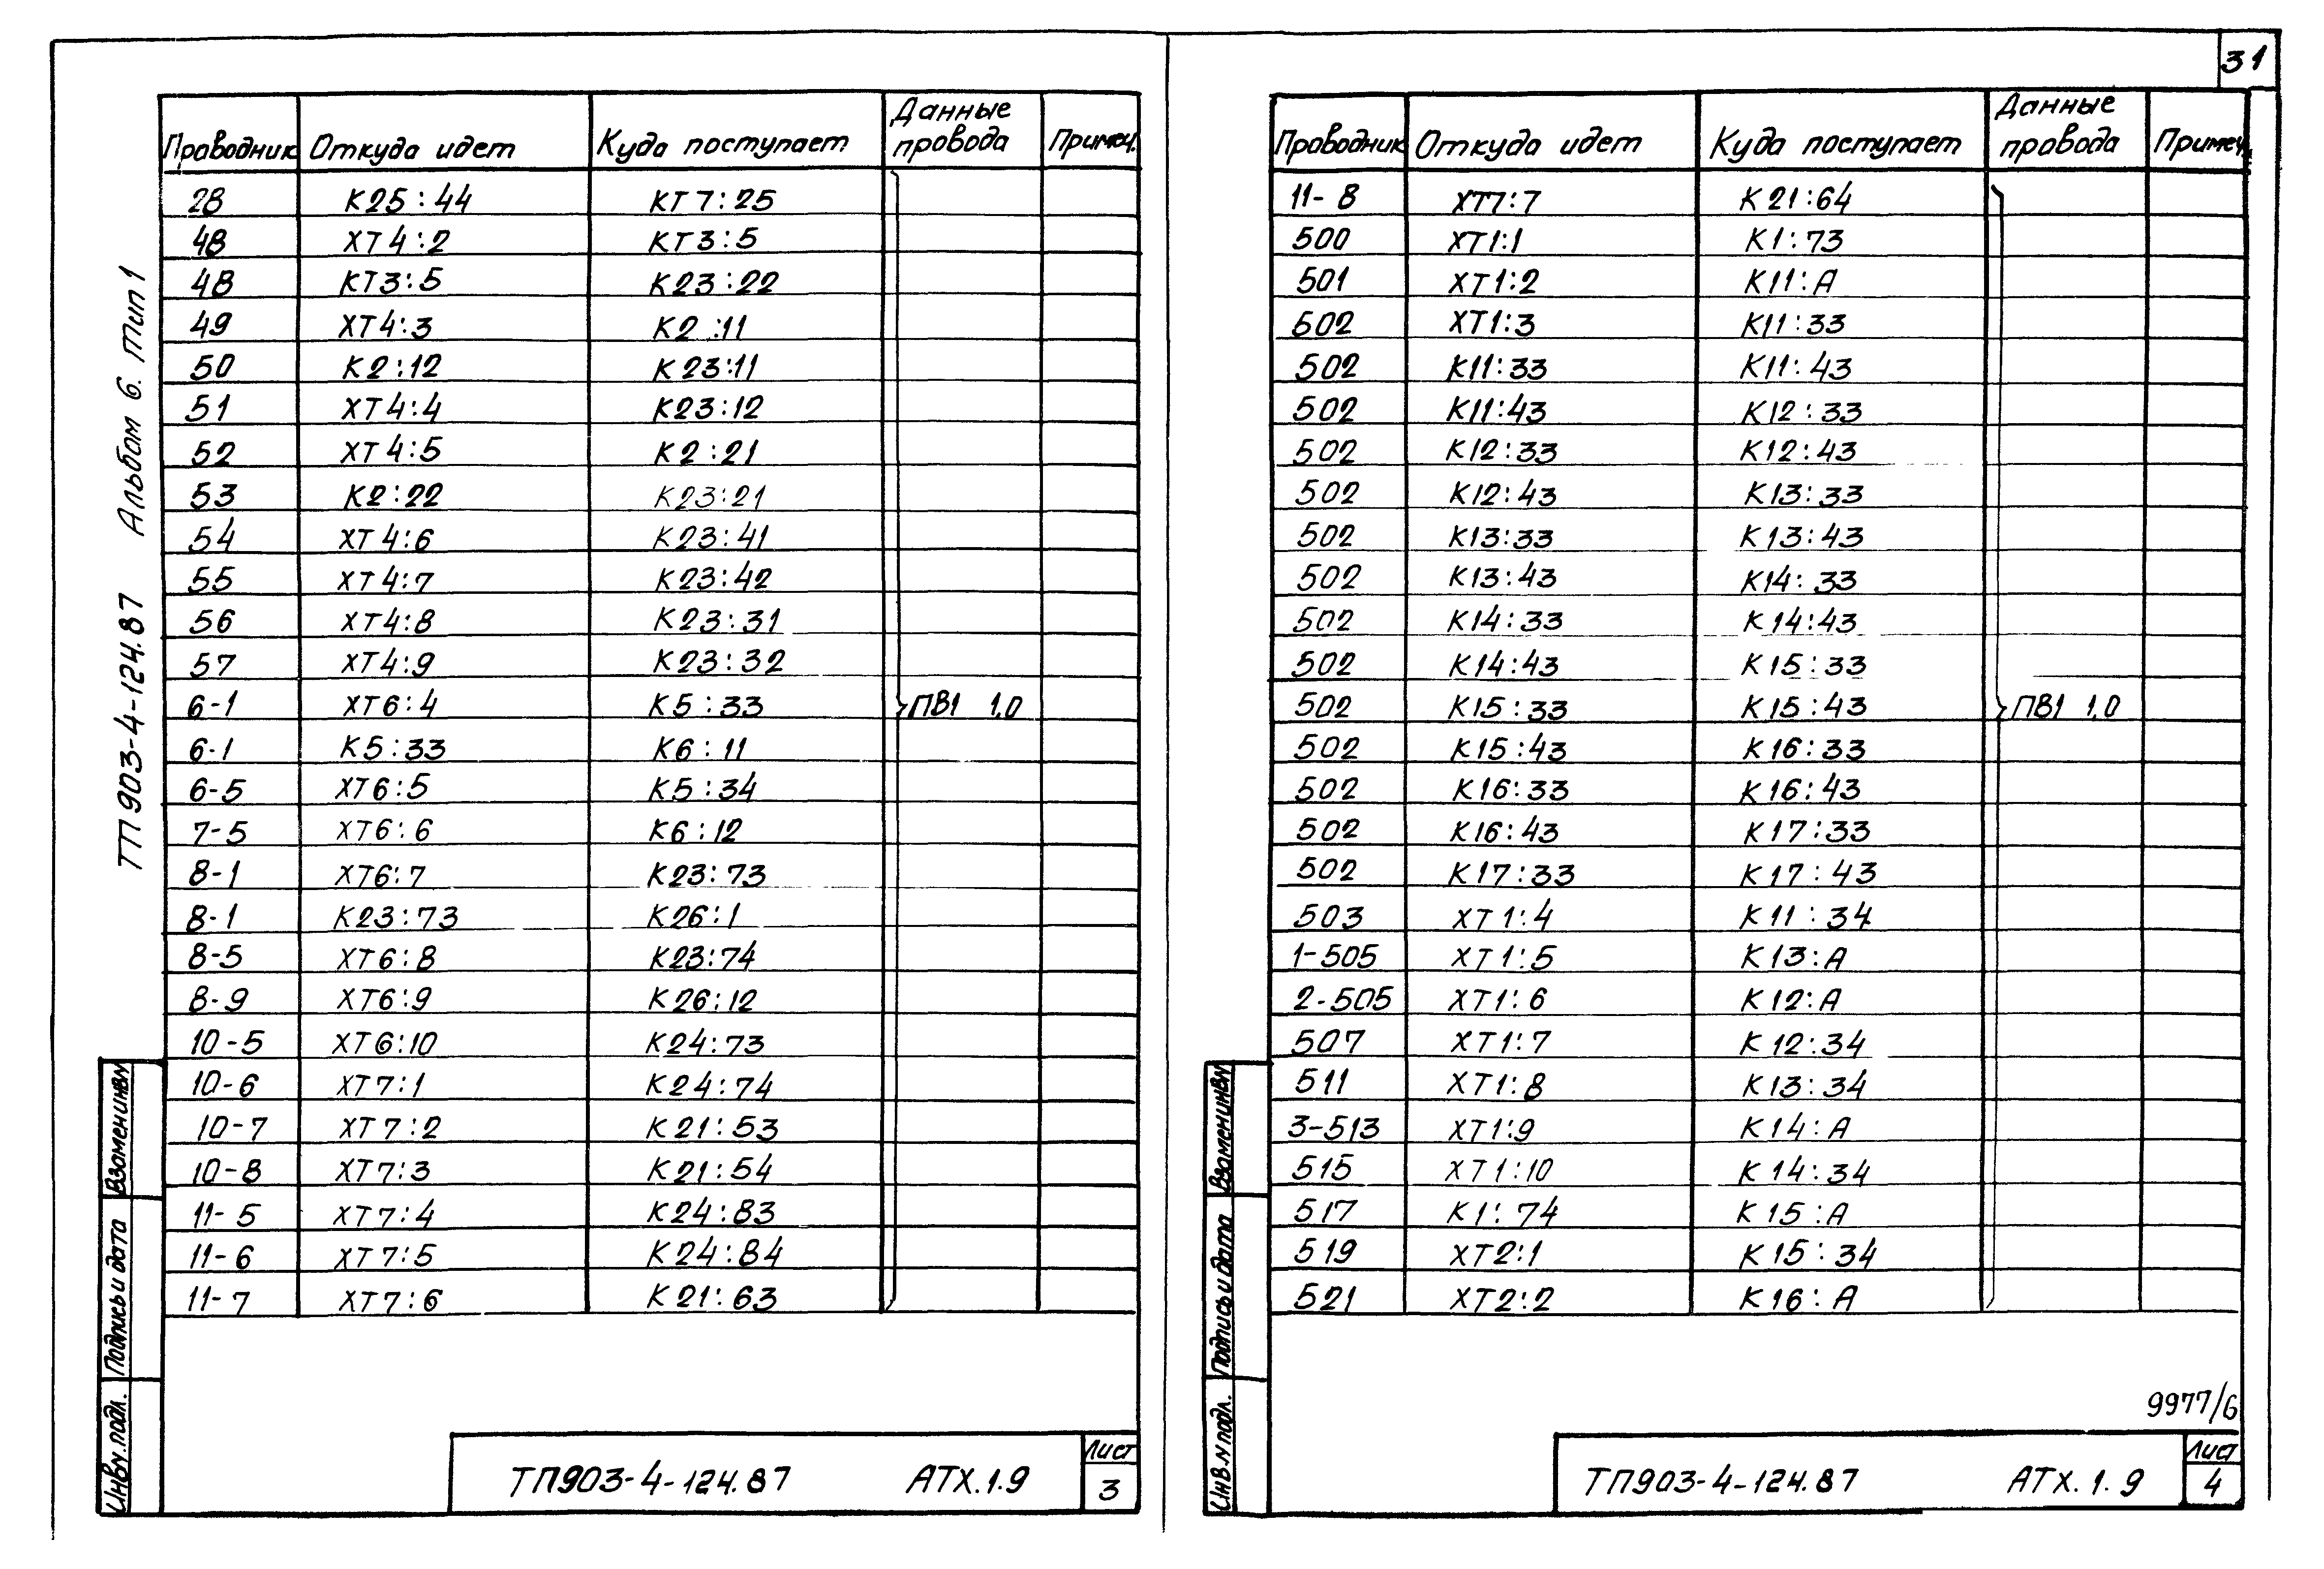 31
ТП903-4-124.87 Альбом 6. Тип 1
Проводник Откуда идет Куда поступает Данные провода Примеч.
28 К25:44 КТ7:25
48 ХТ4:2 КТ3:5
48 КТ3:5 К23:22
49 ХТ4:3 К2:11
50 К2:12 К23:11
51 ХТ4:4 К23:12
52 ХТ4:5 К2:21
53 К2:22 К23:21
54 ХТ4:6 К23:41
55 ХТ4:7 К23:42
56 ХТ4:8 К23:31
57 ХТ4:9 К23:32
6-1 ХТ6:4 К5:33 ПВ1 1,0
6-1 К5:33 К6:11
6-5 ХТ6:5 К5:34
7-5 ХТ6:6 К6:12
8-1 ХТ6:7 К23:73
8-1 К23:73 К26:1
8-5 ХТ6:8 К23:74
8-9 ХТ6:9 К26:12
10-5 ХТ6:10 К24:73
10-6 ХТ7:1 К24:74
10-7 ХТ7:2 К21:53
10-8 ХТ7:3 К21:54
11-5 ХТ7:4 К24:83
11-6 ХТ7:5 К24:84
11-7 ХТ7:6 К21:63
Взамен инв№
Подпись и дата
Инв№.подл.
ТП903-4-124.87 АТХ.1.9
Лист
3
Проводник Откуда идет Куда поступает Данные провода Примеч.
11-8 ХТ7:7 К21:64
500 ХТ1:1 К1:73
501 ХТ1:2 К11:А
502 ХТ1:3 К11:33
502 К11:33 К11:43
502 К11:43 К12:33
502 К12:33 К12:43
502 К12:43 К13:33
502 К13:33 К13:43
502 К13:43 К14:33
502 К14:33 К14:43
502 К14:43 К15:33
502 К15:33 К15:43 ПВ1 1,0
502 К15:43 К16:33
502 К16:33 К16:43
502 К16:43 К17:33
502 К17:33 К17:43
503 ХТ1:4 К11:34
1-505 ХТ1:5 К13:А
2-505 ХТ1:6 К12:А
507 ХТ1:7 К12:34
511 ХТ1:8 К13:34
3-513 ХТ1:9 К14:А
515 ХТ1:10 К14:34
517 К1:74 К15:А
519 ХТ2:1 К15:34
521 ХТ2:2 К16:А
Взамен инв№
Подпись и дата
Инв.№ подл.
9977/6
ТП903-4-124.87 АТХ.1.9
Лист
4